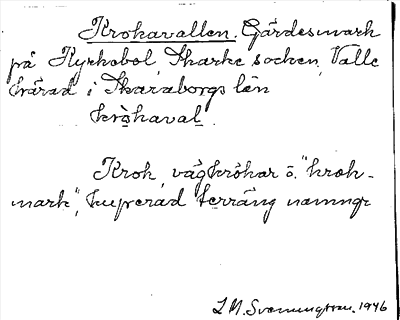 Krokavallen. Gärdesmark
på Kyrkobol, Skarke socken, Valle
härad i Skaraborgs län
kròkaval.
Krok, vägkrökar o. "krok-
mark", kuperad terräng
L M. Svenungsson. 1946